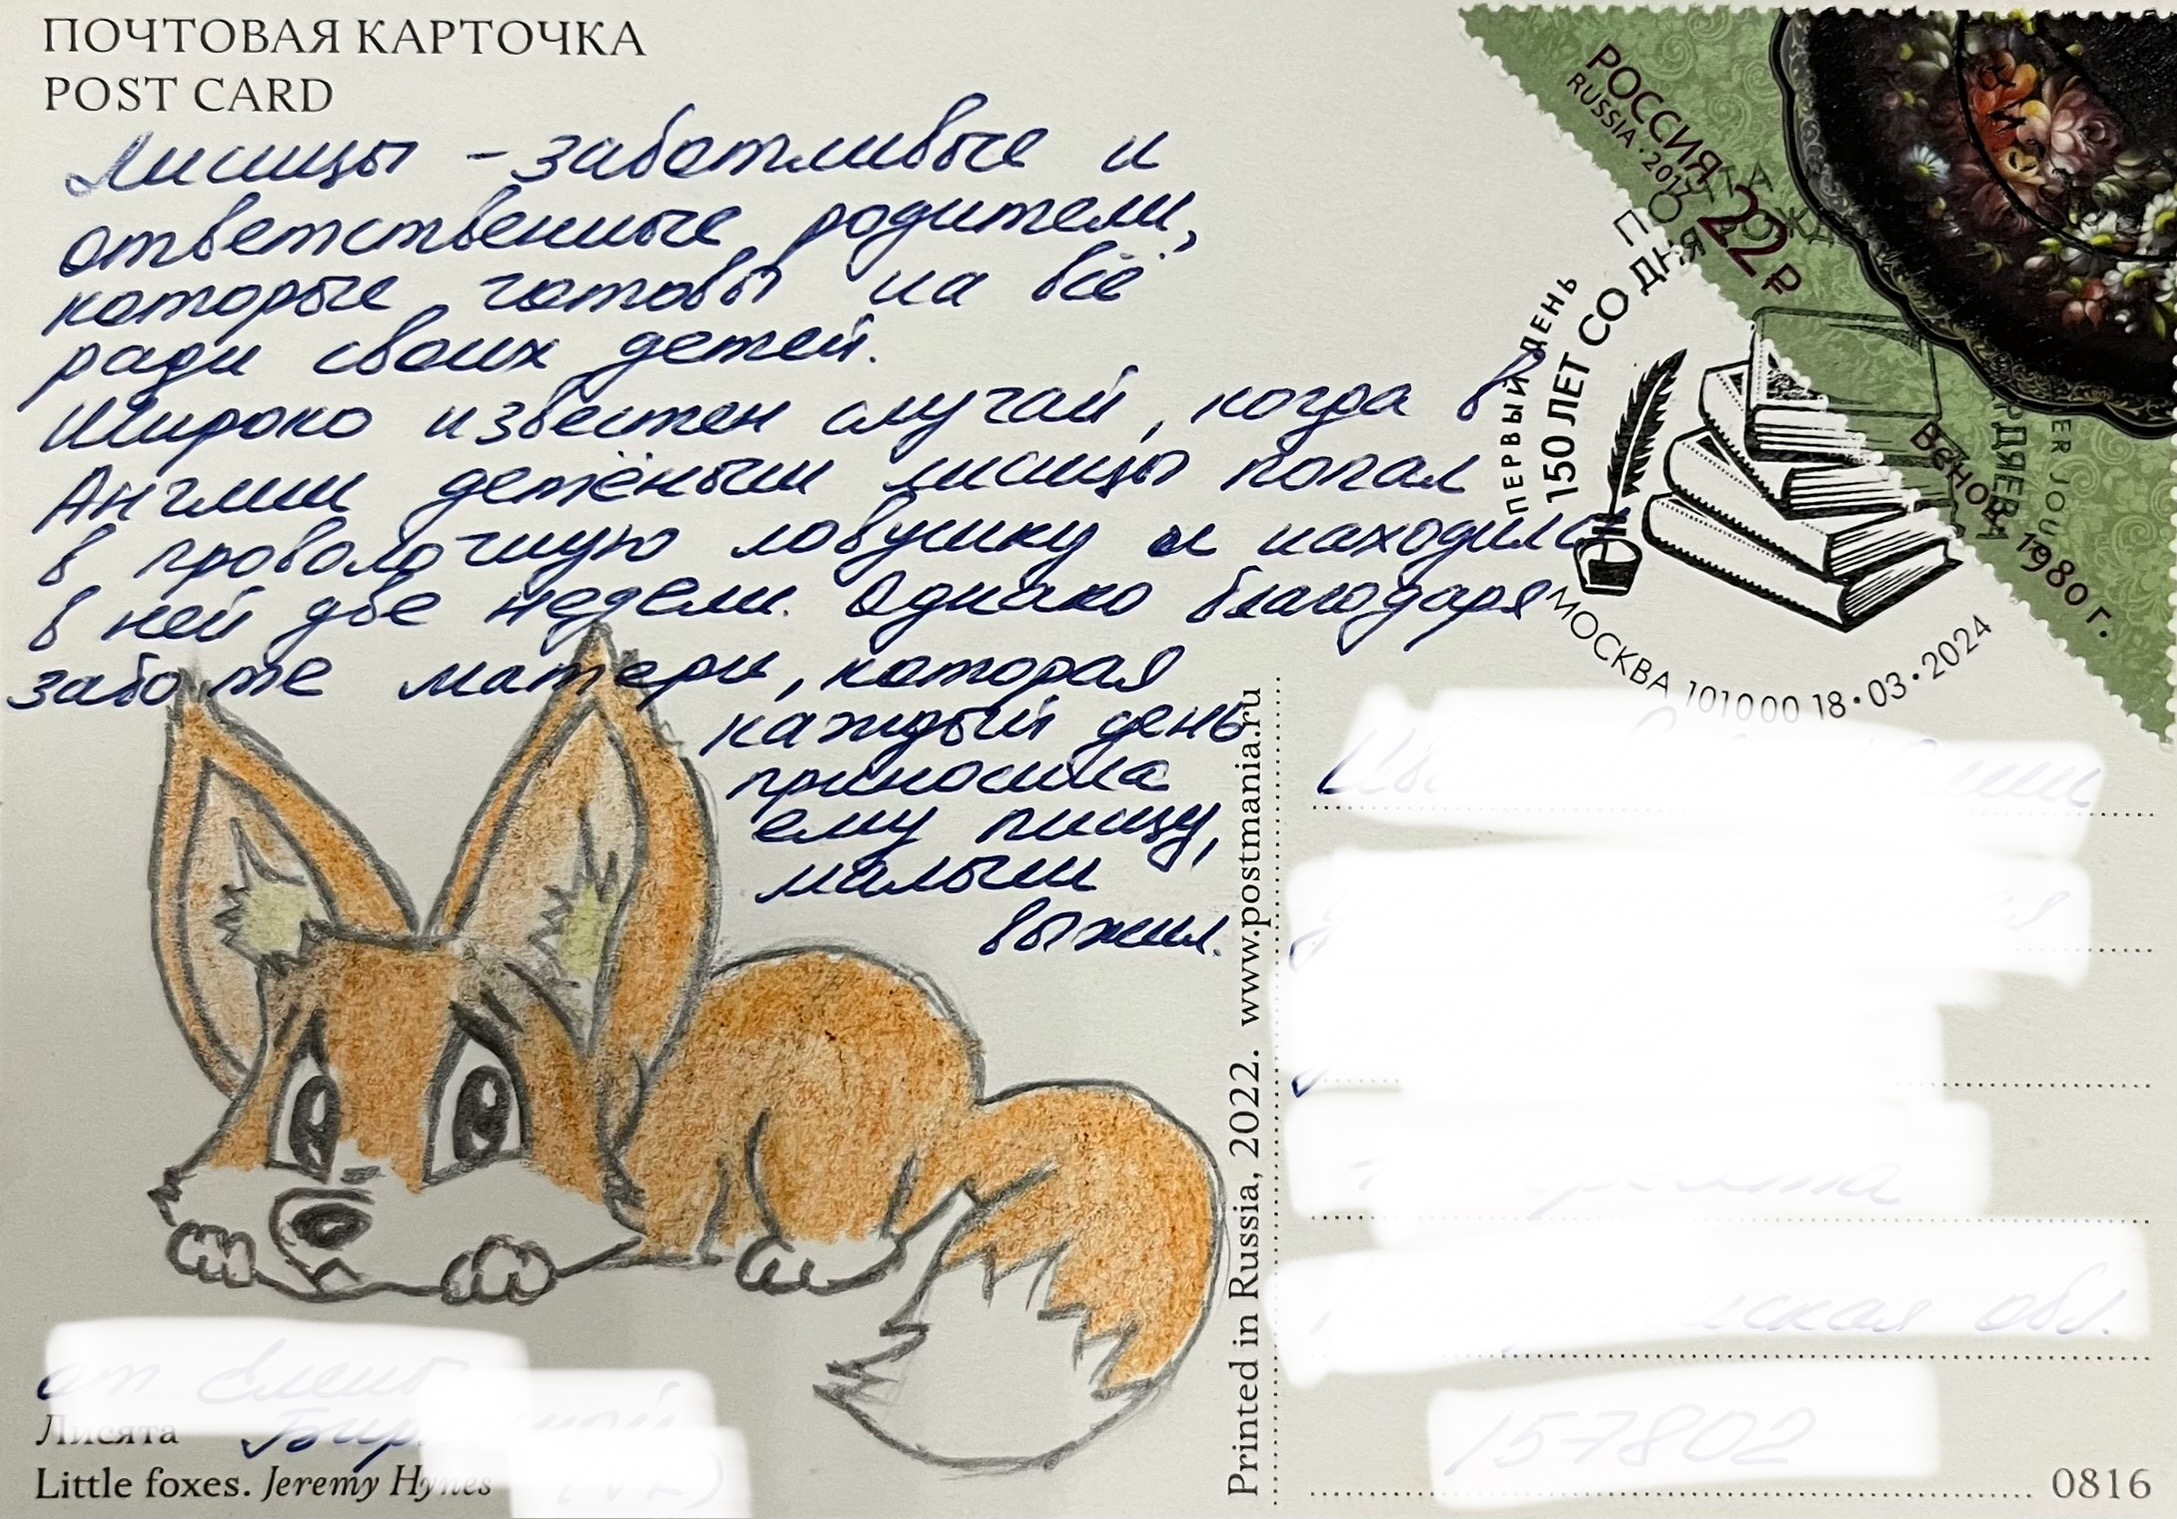 ПОЧТОВАЯ КАРТОЧКА
POST CARD
Лисицы - заботливые и
ответственные родители,
которые готовы на всё
ради своих детей.
Широко известен случай, когда в
Англии детёныш лисицы попал
в проволочную ловушку и находился
в ней две недели. Однако благодаря
заботе матери, которая
каждый день
приносила
ему пищу,
малыш
выжил.
РОССИЯ
RUSSIA·2017
22 ₽
ПЕРВЫЙ ДЕНЬ
150 ЛЕТ СО ДНЯ
МОСКВА 101000 18·03·2024
1980 г.
Printed in Russia, 2022. www.postmania.ru
обл.
157802
от
Лисята
Little foxes. Jeremy Hynes
0816